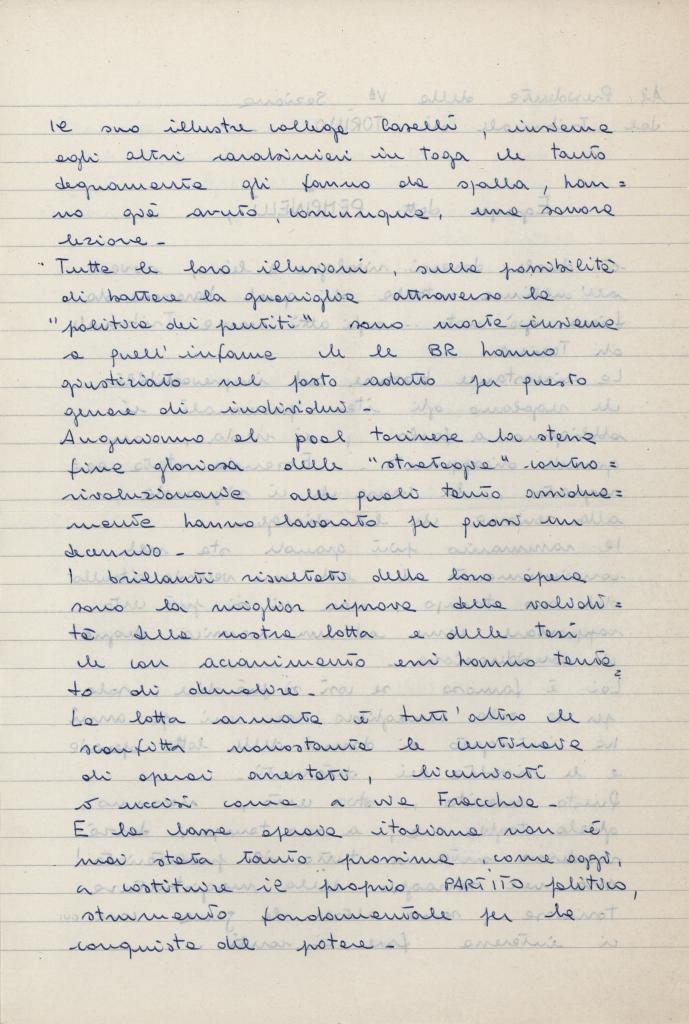 Il suo illustre collega Caselli, insieme
agli altri carabinieri in toga che tanto
degnamente gli fanno da spalla, han=
no già avuto, comunque, una sonora
lezione -
Tutte le loro illusioni, sulla possibilità
di battere la guerriglia attraverso la
"politica dei pentiti" sono morte insieme
a quell'infame che le BR hanno
giustiziato nel posto adatto per questo
genere di individui -
Auguriamo al pool torinese la stessa
fine gloriosa delle "strategie" contro=
rivoluzionarie alle quali tanto assidua=
mente hanno lavorato per quasi un
decennio -
I brillanti risultati della loro opera
sono la miglior riprova della validi=
tà della nostra lotta e delle tesi
che con accanimento essi hanno tenta=
to di demolire -
La lotta armata è tutt'altro che
sconfitta nonostante le centinaia
di operai arrestati, licenziati
o uccisi come a via Fracchia -
E la classe operaia italiana non è
mai stata tanto prossima, come oggi,
a costituire il proprio PARTITO politico,
strumento fondamentale per la
conquista del potere -